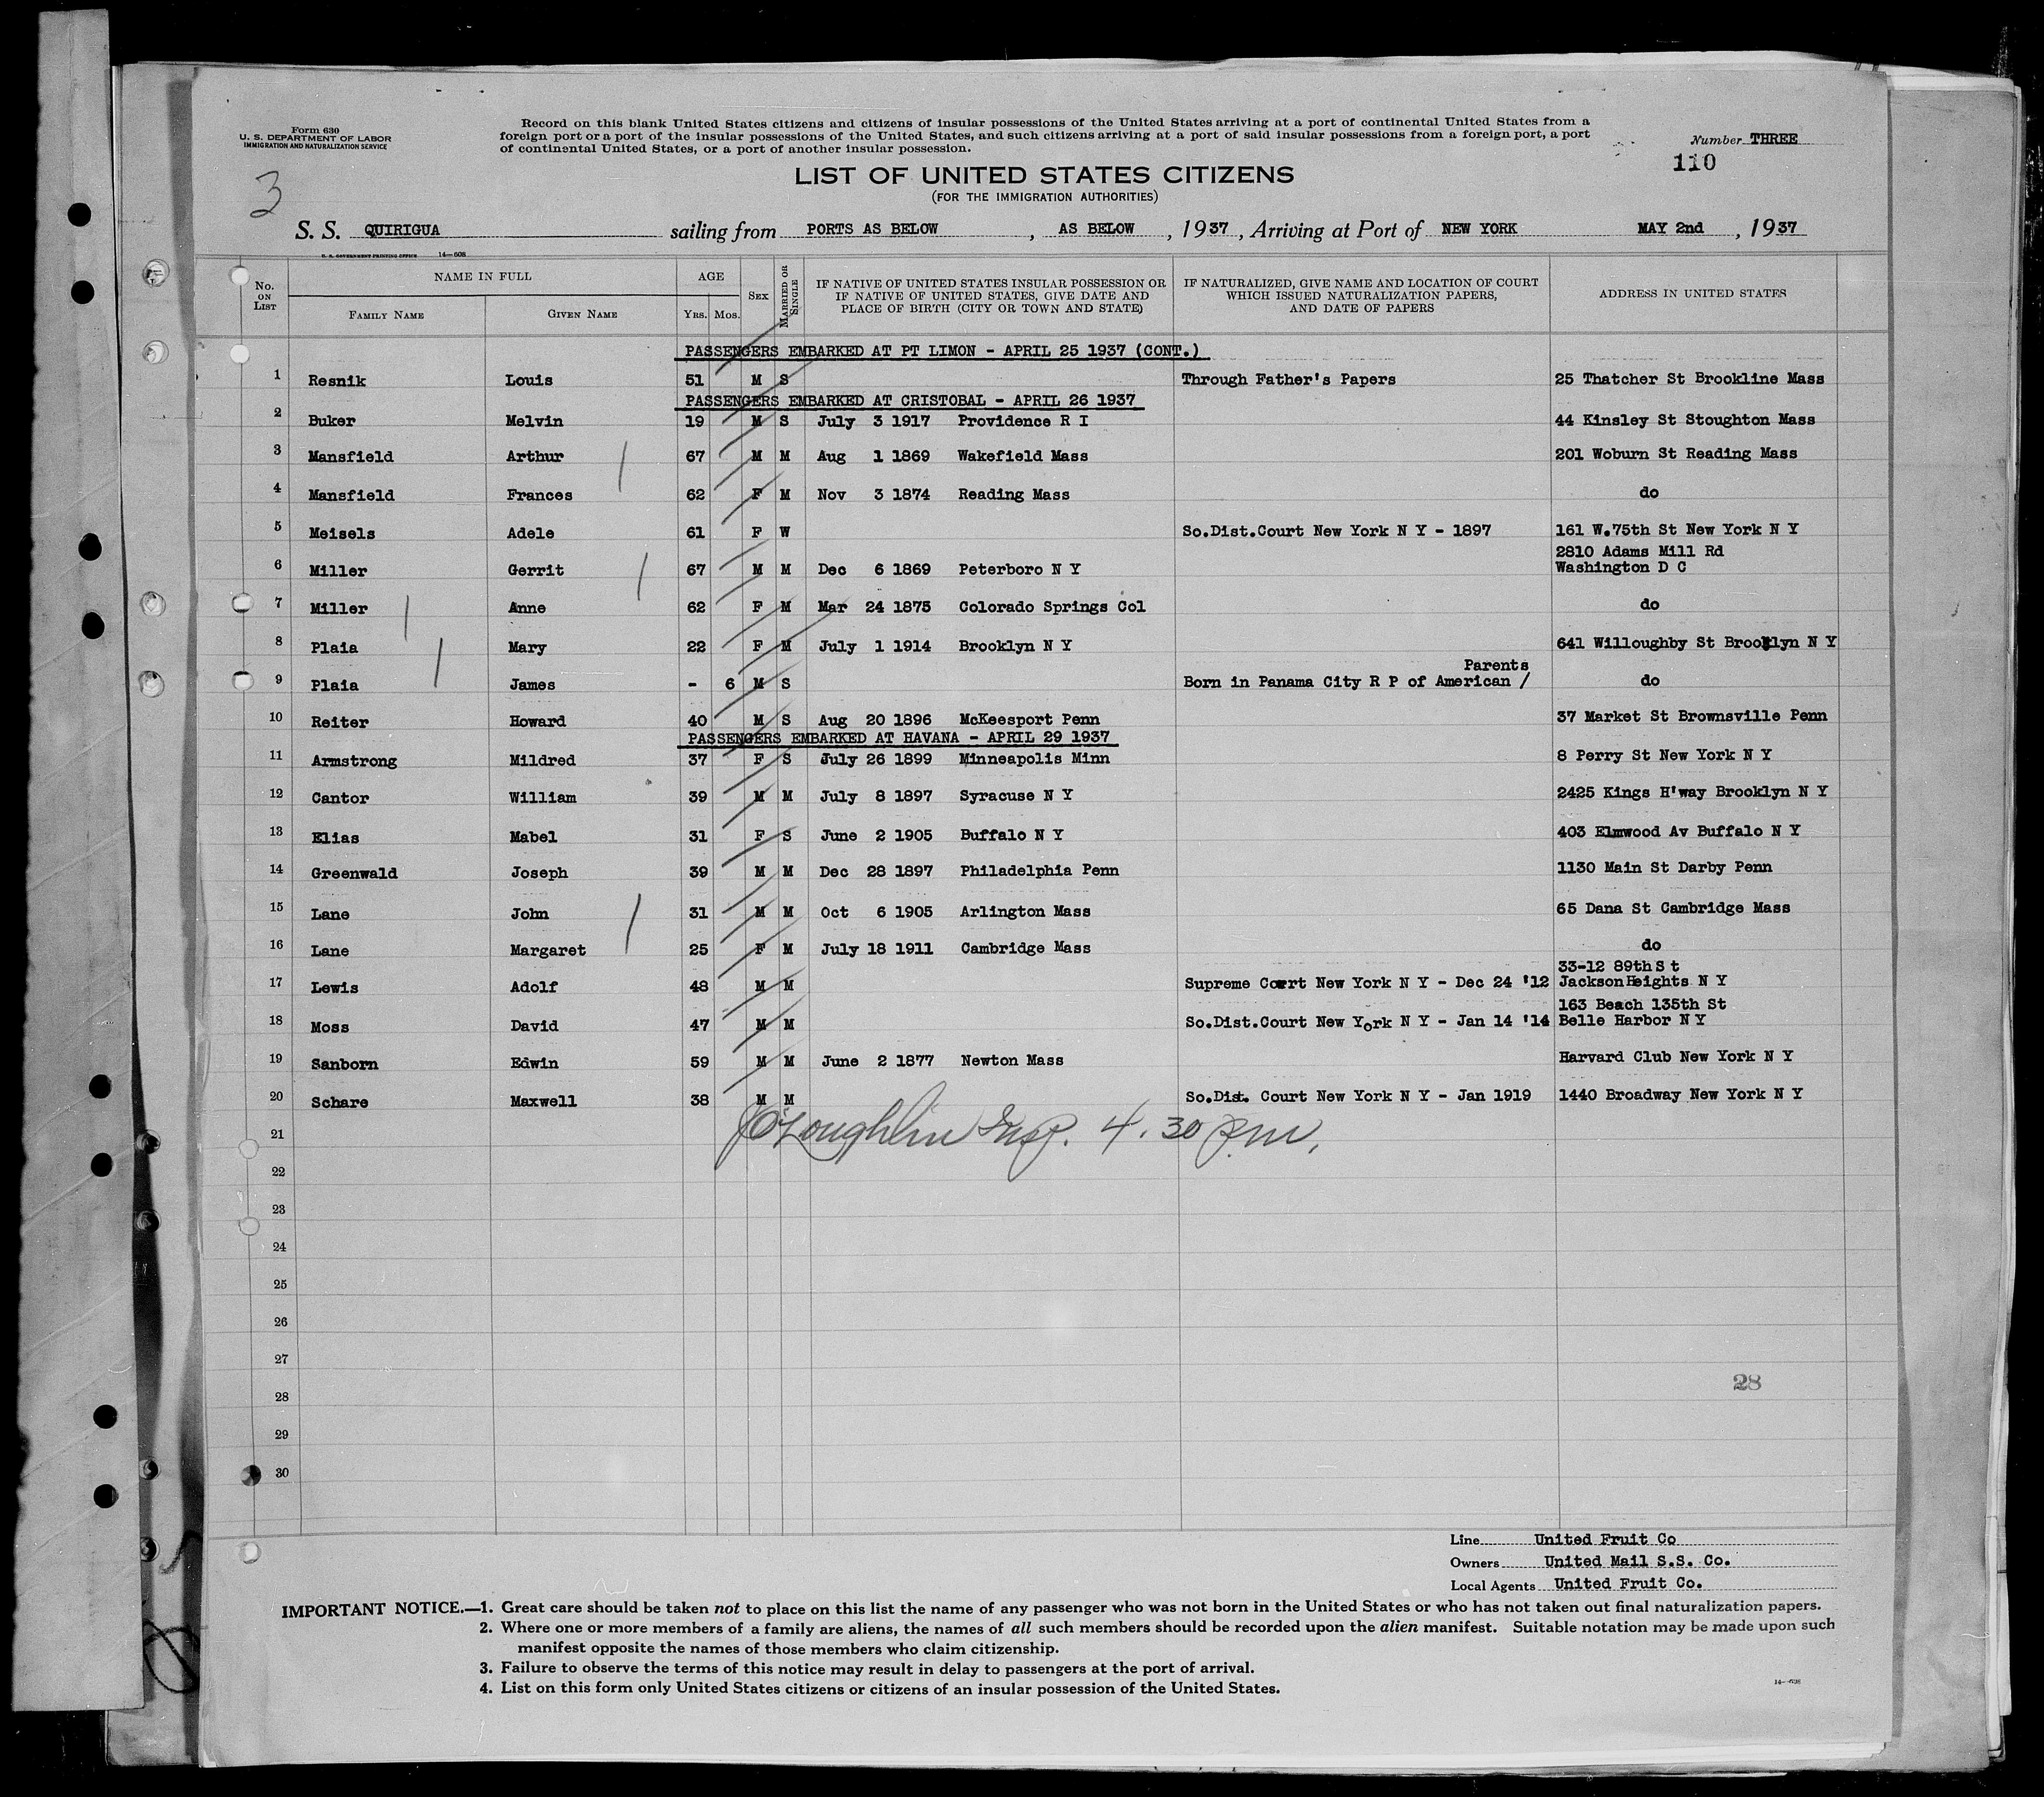 Form 630
U. S. DEPARTMENT OF LABOR
IMMIGRATION AND NATURALIZATION SERVICE
Record on this blank United States citizens and citizens of insular possessions of the United States arriving at a port of continental United States from a
foreign port or a port of the insular possessions of the United States, and such citizens arriving at a port of said insular possessions from a foreign port, a port
of continental United States, or a port of another insular possession.
Number THREE
110
3
LIST OF UNITED STATES CITIZENS
(FOR THE IMMIGRATION AUTHORITIES)
S. S. QUIRIGUA sailing from PORTS AS BELOW , AS BELOW , 1937 , Arriving at Port of NEW YORK MAY 2nd , 1937
U. S. GOVERNMENT PRINTING OFFICE 14—508
No. ON LIST NAME IN FULL AGE SEX MARRIED OR SINGLE IF NATIVE OF UNITED STATES INSULAR POSSESSION OR IF NATIVE OF UNITED STATES, GIVE DATE AND PLACE OF BIRTH (CITY OR TOWN AND STATE) IF NATURALIZED, GIVE NAME AND LOCATION OF COURT WHICH ISSUED NATURALIZATION PAPERS, AND DATE OF PAPERS ADDRESS IN UNITED STATES
FAMILY NAME GIVEN NAME YRS. MOS.
PASSENGERS EMBARKED AT PT LIMON - APRIL 25 1937 (CONT.)
1 Resnik Louis 51 M S Through Father's Papers 25 Thatcher St Brookline Mass
PASSENGERS EMBARKED AT CRISTOBAL - APRIL 26 1937
2 Buker Melvin 19 M S July 3 1917 Providence R I 44 Kinsley St Stoughton Mass
3 Mansfield Arthur 67 M M Aug 1 1869 Wakefield Mass 201 Woburn St Reading Mass
4 Mansfield Frances 62 F M Nov 3 1874 Reading Mass do
5 Meisels Adele 61 F W So.Dist.Court New York N Y - 1897 161 W.75th St New York N Y
2810 Adams Mill Rd
6 Miller Gerrit 67 M M Dec 6 1869 Peterboro N Y Washington D C
7 Miller Anne 62 F M Mar 24 1875 Colorado Springs Col do
8 Plaia Mary 22 F M July 1 1914 Brooklyn N Y 641 Willoughby St Brooklyn N Y
Parents
9 Plaia James - 6 M S Born in Panama City R P of American / do
10 Reiter Howard 40 M S Aug 20 1896 McKeesport Penn 37 Market St Brownsville Penn
PASSENGERS EMBARKED AT HAVANA - APRIL 29 1937
11 Armstrong Mildred 37 F S July 26 1899 Minneapolis Minn 8 Perry St New York N Y
12 Cantor William 39 M M July 8 1897 Syracuse N Y 2425 Kings H'way Brooklyn N Y
13 Elias Mabel 31 F S June 2 1905 Buffalo N Y 403 Elmwood Av Buffalo N Y
14 Greenwald Joseph 39 M M Dec 28 1897 Philadelphia Penn 1130 Main St Darby Penn
15 Lane John 31 M M Oct 6 1905 Arlington Mass 65 Dana St Cambridge Mass
16 Lane Margaret 25 F M July 18 1911 Cambridge Mass do
33-12 89th S t
17 Lewis Adolf 48 M M Supreme Court New York N Y - Dec 24 '12 Jackson Heights N Y
163 Beach 135th St
18 Moss David 47 M M So.Dist.Court New York N Y - Jan 14 '14 Belle Harbor N Y
19 Sanborn Edwin 59 M M June 2 1877 Newton Mass Harvard Club New York N Y
20 Schare Maxwell 38 M M So.Dist. Court New York N Y - Jan 1919 1440 Broadway New York N Y
O'Loughlin Insp. 4.30 P.M.
21
22
23
24
25
26
27
28
28
29
30
Line United Fruit Co
Owners United Mail S.S. Co.
Local Agents United Fruit Co.
IMPORTANT NOTICE.—1. Great care should be taken not to place on this list the name of any passenger who was not born in the United States or who has not taken out final naturalization papers.
2. Where one or more members of a family are aliens, the names of all such members should be recorded upon the alien manifest. Suitable notation may be made upon such
manifest opposite the names of those members who claim citizenship.
3. Failure to observe the terms of this notice may result in delay to passengers at the port of arrival.
4. List on this form only United States citizens or citizens of an insular possession of the United States.